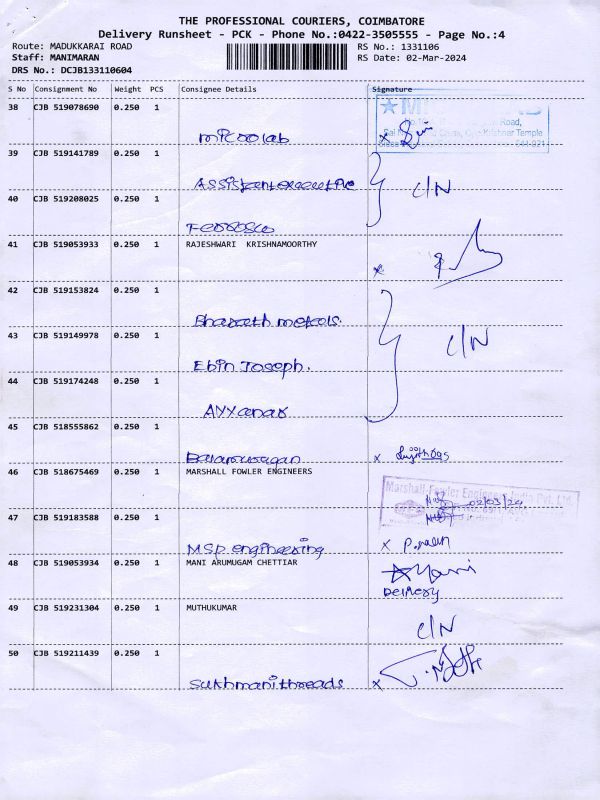 THE PROFESSIONAL COURIERS, COIMBATORE
Delivery Runsheet - PCK - Phone No.:0422-3505555 - Page No.:4
Route: MADUKKARAI ROAD RS No.: 1331106
Staff: MANIMARAN RS Date: 02-Mar-2024
DRS No.: DCJB133110604
S No Consignment No Weight PCS Consignee Details Signature
38 CJB 519078690 0.250 1
Road,
Krishner Temple
microlab x
39 CJB 519141789 0.250 1
Assistant executive C/N
40 CJB 519208025 0.250 1
41 CJB 519053933 0.250 1 RAJESHWARI KRISHNAMOORTHY
x
42 CJB 519153824 0.250 1
Bharath metals.
43 CJB 519149978 0.250 1 C/N
Ebin Joseph.
44 CJB 519174248 0.250 1
Ayyanar
45 CJB 518555862 0.250 1
Balamurugan x
46 CJB 518675469 0.250 1 MARSHALL FOWLER ENGINEERS
Marshall Fowler Engineers India Pvt. Ltd.
02/03/24
47 CJB 519183588 0.250 1
MSP engineering x
48 CJB 519053934 0.250 1 MANI ARUMUGAM CHETTIAR
Mani
Delivery
49 CJB 519231304 0.250 1 MUTHUKUMAR
C/N
50 CJB 519211439 0.250 1
Sukhmanithreads x